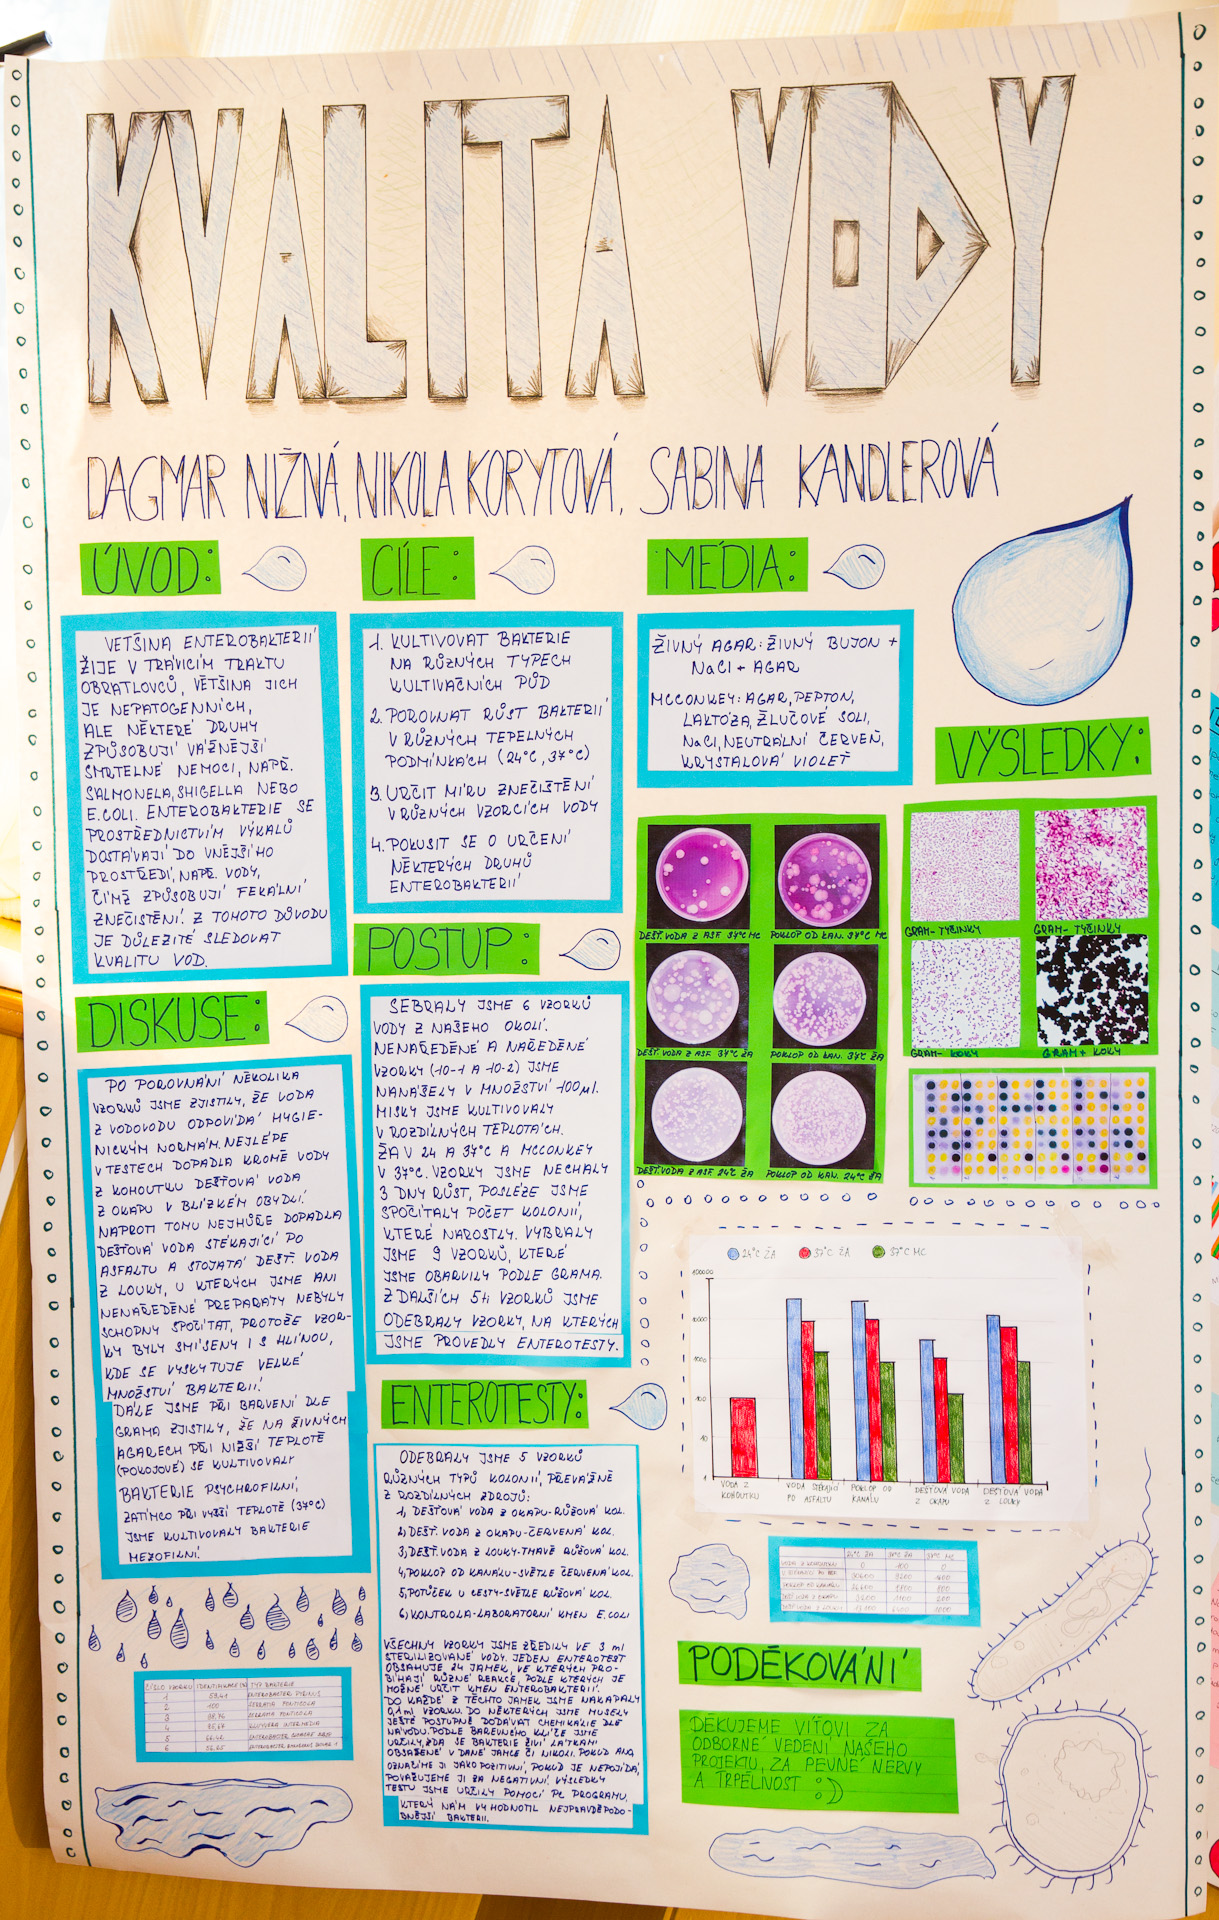 KVALITA VODY
DAGMAR NIŽNÁ, NIKOLA KORYTOVÁ, SABINA KANDLEROVÁ
ÚVOD:
VETŠINA ENTEROBAKTERIÍ
ŽIJE V TRÁVICÍM TRAKTU
OBRATLOVCŮ, VĚTŠINA JICH
JE NEPATOGENNÍCH,
ALE NĚKTERÉ DRUHY
ZPŮSOBUJÍ VÁŽNĚJŠÍ
SMRTELNÉ NEMOCI, NAPŘ.
SALMONELA, SHIGELLA NEBO
E.COLI. ENTEROBAKTERIE SE
PROSTŘEDNICTVÍM VÝKALŮ
DOSTÁVAJÍ DO VNĚJŠÍHO
PROSTŘEDÍ, NAPŘ. VODY,
ČÍMŽ ZPŮSOBUJÍ FEKÁLNÍ
ZNEČISTĚNÍ. Z TOHOTO DŮVODU
JE DŮLEŽITÉ SLEDOVAT
KVALITU VOD.
CÍLE:
1. KULTIVOVAT BAKTERIE
NA RŮZNÝCH TYPECH
KULTIVAČNÍCH PŮD
2. POROVNAT RŮST BAKTERIÍ
V RŮZNÝCH TEPELNÝCH
PODMÍNKÁCH (24°C, 37°C)
3. URČIT MÍRU ZNEČIŠTĚNÍ
V RŮZNÝCH VZORCÍCH VODY
4. POKUSIT SE O URČENÍ
NĚKTERÝCH DRUHŮ
ENTEROBAKTERIÍ
MÉDIA:
ŽIVNÝ AGAR: ŽIVNÝ BUJON +
NaCl + AGAR
MCCONKEY: AGAR, PEPTON,
LAKTÓZA, ŽLUČOVÉ SOLI,
NaCl, NEUTRÁLNÍ ČERVEŇ,
KRYSTALOVÁ VIOLEŤ
VÝSLEDKY:
DEŠŤ. VODA Z ASF. 37°C MC
POKLOP OD KAN. 37°C MC
DEŠŤ. VODA Z ASF. 37°C ŽA
POKLOP OD KAN. 37°C ŽA
DEŠŤ. VODA Z ASF. 24°C ŽA
POKLOP OD KAN. 24°C ŽA
GRAM- TYČINKY
GRAM- TYČINKY
GRAM- KOKY
GRAM+ KOKY
POSTUP:
SEBRALY JSME 6 VZORKŮ
VODY Z NAŠEHO OKOLÍ.
NENAŘEDĚNÉ A NAŘEDĚNÉ
VZORKY (10-1 A 10-2) JSME
NANÁŠELY V MNOŽSTVÍ 100μl.
MISKY JSME KULTIVOVALY
V ROZDÍLNÝCH TEPLOTÁCH.
ŽA V 24 A 37°C A MCCONKEY
V 37°C. VZORKY JSME NECHALY
3 DNY RŮST, POSLÉZE JSME
SPOČÍTALY POČET KOLONIÍ,
KTERÉ NAROSTLY. VYBRALY
JSME 9 VZORKŮ, KTERÉ
JSME OBARVILY PODLE GRAMA.
Z DALŠÍCH 5ti VZORKŮ JSME
ODEBRALY VZORKY, NA KTERÝCH
JSME PROVEDLY ENTEROTESTY.
DISKUSE:
PO POROVNÁNÍ NĚKOLIKA
VZORKŮ JSME ZJISTILY, ŽE VODA
Z VODOVODU ODPOVÍDÁ HYGIE-
NICKÝM NORMÁM. NEJLÉPE
V TESTECH DOPADLA KROMĚ VODY
Z KOHOUTKU DEŠŤOVÁ VODA
Z OKAPU V BLÍZKÉM OBYDLÍ.
NAPROTI TOMU NEJHŮŘE DOPADLA
DEŠŤOVÁ VODA STÉKAJÍCÍ PO
ASFALTU A STOJATÁ DEŠŤ. VODA
Z LOUKY, U KTERÝCH JSME ANI
NENAŘEDĚNÉ PREPARÁTY NEBYLY
SCHOPNY SPOČÍTAT, PROTOŽE VZOR-
KY BYLY SMÍSENY I S HLÍNOU,
KDE SE VYSKYTUJE VELKÉ
MNOŽSTVÍ BAKTERIÍ.
DÁLE JSME PŘI BARVENÍ DLE
GRAMA ZJISTILY, ŽE NA ŽIVNÝCH
AGARECH PŘI NIŽŠÍ TEPLOTĚ
(POKOJOVÉ) SE KULTIVOVALY
BAKTERIE PSYCHROFILNÍ,
ZATÍMCO PŘI VYŠŠÍ TEPLOTĚ (37°C)
JSME KULTIVOVALY BAKTERIE
MEZOFILNÍ.
ENTEROTESTY:
ODEBRALY JSME 5 VZORKŮ
RŮZNÝCH TYPŮ KOLONIÍ, PŘEVÁŽNĚ
Z ROZDÍLNÝCH ZDROJŮ:
1, DEŠŤOVÁ VODA Z OKAPU-RŮŽOVÁ KOL.
2, DEŠŤ. VODA Z OKAPU-ČERVENÁ KOL.
3, DEŠŤ. VODA Z LOUKY-TMAVĚ RŮŽOVÁ KOL.
4, POKLOP OD KANÁLU-SVĚTLE ČERVENÁ KOL.
5, POTŮČEK U CESTY-SVĚTLE RŮŽOVÁ KOL.
6, KONTROLA-LABORATORNÍ KMEN E.COLI
VŠECHNY VZORKY JSME ZŘEDILY VE 3 ml
STERILIZOVANÉ VODY. JEDEN ENTEROTEST
OBSAHUJE 24 JAMEK, VE KTERÝCH PRO-
BÍHAJÍ RŮZNÉ REAKCE, PODLE KTERÝCH JE
MOŽNÉ URČIT KMEN ENTEROBAKTERIÍ.
DO KAŽDÉ Z TĚCHTO JAMEK JSME NAKAPALY
0,1 ml VZORKU. DO NĚKTERÝCH JSME MUSELY
JEŠTĚ POSTUPNĚ DODÁVAT CHEMIKÁLIE DLE
NÁVODU. PODLE BAREVNÉHO KLÍČE JSME
URČILY, ZDA SE BAKTERIE ŽIVÍ LÁTKAMI
OBSAŽENÉ V DANÉ JAMCE ČI NIKOLI. POKUD ANO,
OZNAČÍME JI JAKO POZITIVNÍ, POKUD JE NEPOJÍDÁ,
POVAŽUJEME JI ZA NEGATIVNÍ. VÝSLEDKY
TESTU JSME URČILY POMOCÍ PC PROGRAMU,
KTERÝ NÁM VYHODNOTIL NEJPRAVDĚPODO-
BNĚJŠÍ BAKTERII.
24°C ŽA 37°C ŽA 37°C MC
100000
10000
1000
100
10
1
VODA Z KOHOUTKU
VODA STÉKAJÍCÍ PO ASFALTU
POKLOP OD KANÁLU
DEŠŤOVÁ VODA Z OKAPU
DEŠŤOVÁ VODA Z LOUKY
24°C ŽA 37°C ŽA 37°C MC
VODA Z KOHOUTKU 0 100 0
ČÍSLO VZORKU IDENTIFIKACE (%) TYP BAKTERIE
2 100 SERRATIA FONTICOLA
PODĚKOVÁNÍ
DĚKUJEME VÍŤOVI ZA
ODBORNÉ VEDENÍ NAŠEHO
PROJEKTU, ZA PEVNÉ NERVY
A TRPĚLNOST :)